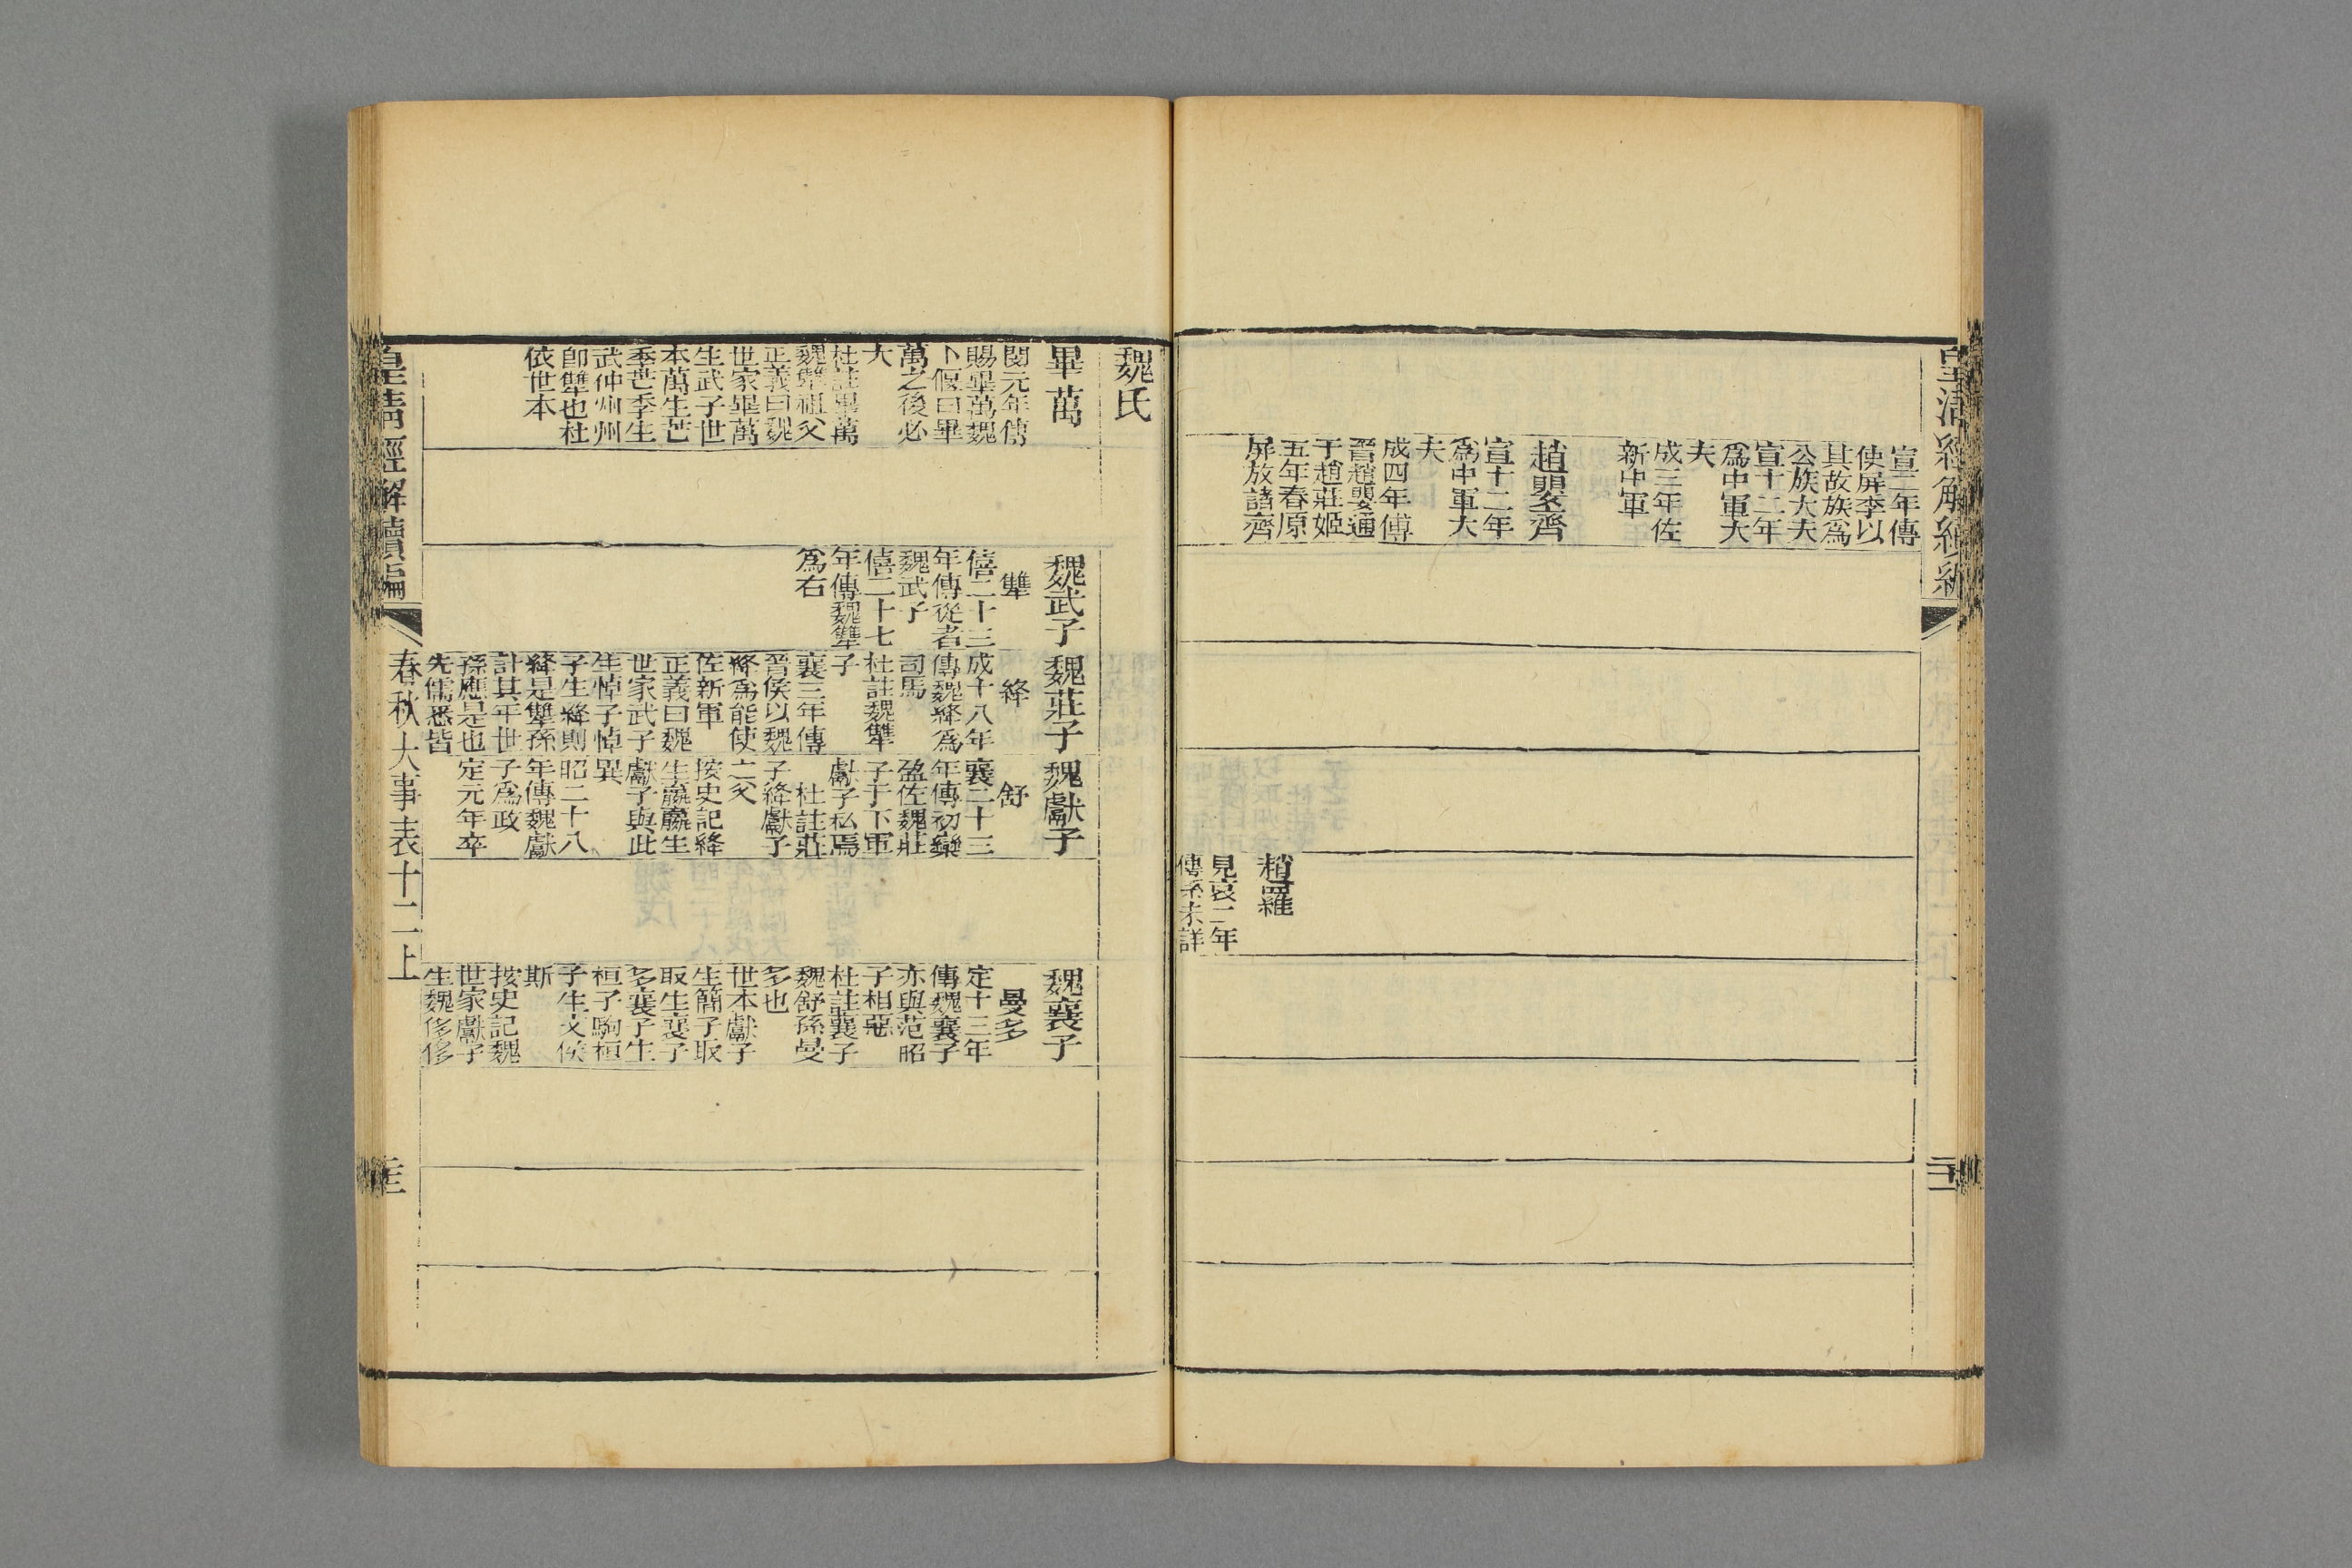 皇清經解續編
宣二年傳
使屏季以
其故族爲
公族大夫
宣十二年
爲中軍大
夫
成三年佐
新中軍
趙嬰齊
宣十二年
爲中軍大
夫
成四年傳
晉趙嬰通
于趙莊姬
五年春原
屏放諸齊
趙羅
見哀二年
傳系未詳
魏氏
畢萬
閔元年傳
賜畢萬魏
卜偃曰畢
萬之後必
大
杜註畢萬
魏犨祖父
正義曰魏
世家畢萬
生武子世
本萬生芒
季芒季生
武仲州州
卽犨也杜
依世本
魏武子
犨
僖二十三
年傳從者
魏武子
僖二十七
年傳魏犨
爲右
魏莊子
絳
成十八年
傳魏絳爲
司馬
杜註魏犨
子
襄三年傳
晉侯以魏
絳爲能使
佐新軍
正義曰魏
世家武子
生悼子悼
子生絳則
絳是犨孫
計其年世
孫應是也
先儒悉皆
魏獻子
舒
襄二十三
年傳初欒
盈佐魏莊
子于下軍
獻子私焉
杜註莊
子絳獻子
之父
按史記絳
生嬴嬴生
獻子與此
異
昭二十八
年傳魏獻
子爲政
定元年卒
魏襄子
曼多
定十三年
傳魏襄子
亦與范昭
子相惡
杜註襄子
魏舒孫曼
多也
世本獻子
生簡子取
取生襄子
多襄子生
桓子駒桓
子生文侯
斯
按史記魏
世家獻子
生魏侈侈
皇清經解續編
春秋大事表十二上